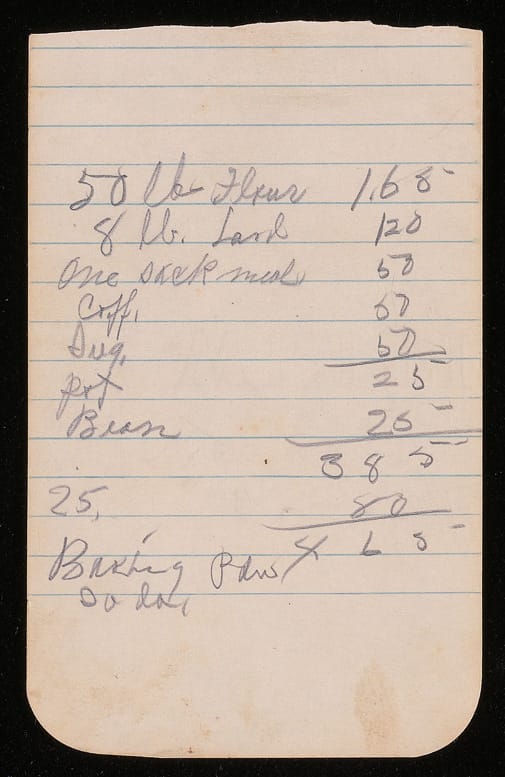 50 lb Flour 1.65
8 lb. Lard 120
One sack meal 50
Coff. 50
Sug. 50
pot 25
Bean 25
385
25, 80
4 65
Baking Pow
Soda,